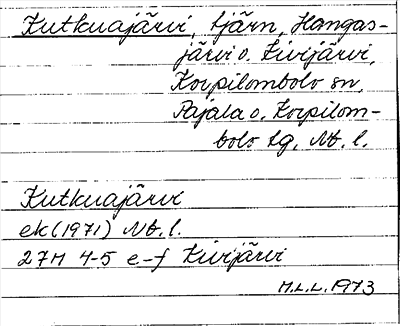 Kutkuajärvi, tjärn, Hangas-
järvi o. Kivijärvi,
Korpilombolo sn,
Pajala o. Korpilom-
bolo tg, Nb. l.
Kutkuajärvi
ek (1971) Nb. l.
27M 4-5 e-f Kivijärvi
M.L.L. 1973